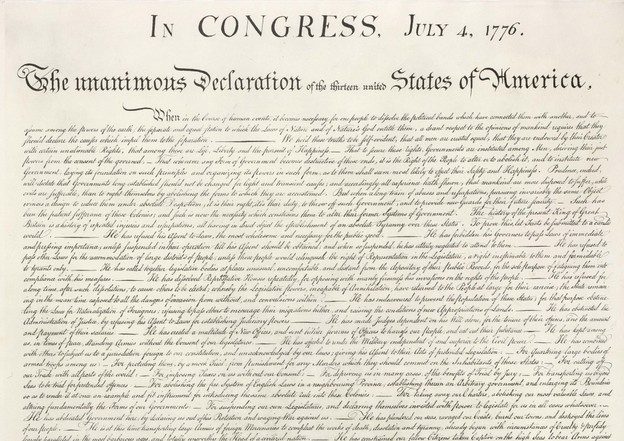 IN CONGRESS, JULY 4, 1776.
The unanimous Declaration of the thirteen united States of America,
When in the Course of human events, it becomes necessary for one people to dissolve the political bands which have connected them with another, and to
assume among the powers of the earth, the separate and equal station to which the Laws of Nature and of Nature's God entitle them, a decent respect to the opinions of mankind requires that they
should declare the causes which impel them to the separation. — We hold these truths to be self-evident, that all men are created equal, that they are endowed by their Creator
with certain unalienable Rights, that among these are Life, Liberty and the pursuit of Happiness. — That to secure these rights, Governments are instituted among Men, deriving their just
powers from the consent of the governed, — That whenever any Form of Government becomes destructive of these ends, it is the Right of the People to alter or to abolish it, and to institute new
Government, laying its foundation on such principles and organizing its powers in such form, as to them shall seem most likely to effect their Safety and Happiness. Prudence, indeed,
will dictate that Governments long established should not be changed for light and transient causes; and accordingly all experience hath shewn, that mankind are more disposed to suffer, while
evils are sufferable, than to right themselves by abolishing the forms to which they are accustomed. But when a long train of abuses and usurpations, pursuing invariably the same Object
evinces a design to reduce them under absolute Despotism, it is their right, it is their duty, to throw off such Government, and to provide new Guards for their future security. — Such has
been the patient sufferance of these Colonies; and such is now the necessity which constrains them to alter their former Systems of Government. The history of the present King of Great
Britain is a history of repeated injuries and usurpations, all having in direct object the establishment of an absolute Tyranny over these States. To prove this, let Facts be submitted to a candid
world. — He has refused his Assent to Laws, the most wholesome and necessary for the public good. — He has forbidden his Governors to pass Laws of immediate
and pressing importance, unless suspended in their operation till his Assent should be obtained; and when so suspended, he has utterly neglected to attend to them. — He has refused to
pass other Laws for the accommodation of large districts of people, unless those people would relinquish the right of Representation in the Legislature, a right inestimable to them and formidable
to tyrants only. — He has called together legislative bodies at places unusual, uncomfortable, and distant from the depository of their public Records, for the sole purpose of fatiguing them into
compliance with his measures. — He has dissolved Representative Houses repeatedly, for opposing with manly firmness his invasions on the rights of the people. — He has refused for
a long time, after such dissolutions, to cause others to be elected; whereby the Legislative powers, incapable of Annihilation, have returned to the People at large for their exercise; the State remain
ing in the mean time exposed to all the dangers of invasion from without, and convulsions within. — He has endeavoured to prevent the population of these States; for that purpose obstruc
ting the Laws for Naturalization of Foreigners; refusing to pass others to encourage their migrations hither, and raising the conditions of new Appropriations of Lands. — He has obstructed the
Administration of Justice, by refusing his Assent to Laws for establishing Judiciary powers. — He has made Judges dependent on his Will alone, for the tenure of their offices, and the amount
and payment of their salaries. — He has erected a multitude of New Offices, and sent hither swarms of Officers to harrass our people, and eat out their substance. — He has kept among
us, in times of peace, Standing Armies without the Consent of our legislatures. — He has affected to render the Military independent of and superior to the Civil power. — He has combined
with others to subject us to a jurisdiction foreign to our constitution, and unacknowledged by our laws; giving his Assent to their Acts of pretended Legislation: — For Quartering large bodies of
armed troops among us: — For protecting them, by a mock Trial, from punishment for any Murders which they should commit on the Inhabitants of these States: — For cutting off
our Trade with all parts of the world: — For imposing Taxes on us without our Consent: — For depriving us in many cases, of the benefits of Trial by Jury: — For transporting us beyond
Seas to be tried for pretended offences — For abolishing the free System of English Laws in a neighbouring Province, establishing therein an Arbitrary government, and enlarging its Boundaries
so as to render it at once an example and fit instrument for introducing the same absolute rule into these Colonies: — For taking away our Charters, abolishing our most valuable Laws, and
altering fundamentally the Forms of our Governments: — For suspending our own Legislatures, and declaring themselves invested with power to legislate for us in all cases whatsoever. —
He has abdicated Government here, by declaring us out of his Protection and waging War against us. — He has plundered our seas, ravaged our Coasts, burnt our towns, and destroyed the lives
of our people. — He is at this time transporting large Armies of foreign Mercenaries to compleat the works of death, desolation and tyranny, already begun with circumstances of Cruelty & perfidy